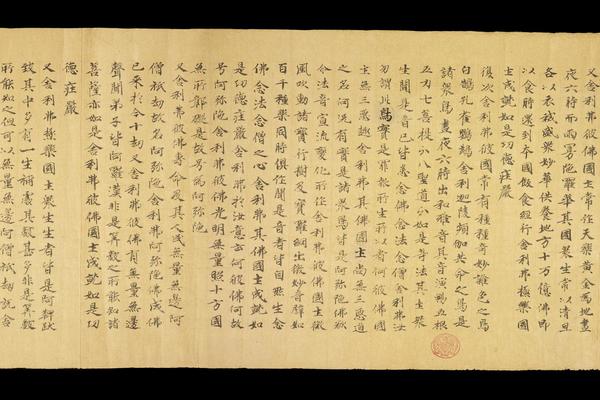 又舍利弗彼佛國土常作天樂黃金為地晝
夜六時而雨曼陀羅華其國衆生常以清旦
各以衣祴盛衆妙華供養他方十万億佛即
以食時還到本國飯食經行舍利弗極樂國
土成就如是功德莊嚴
復次舍利弗彼國常有種種奇妙雜色之鳥
白鵠孔雀鸚鵡舍利迦陵頻伽共命之鳥是
諸衆鳥晝夜六時出和雅音其音演暢五根
五力七菩提分八聖道分如是等法其土衆
生聞是音已皆悉念佛念法念僧舍利弗汝
勿謂此鳥實是罪報所生所以者何彼佛國
土無三惡趣舍利弗其佛國土尚無三惡道
之名何况有實是諸衆鳥皆是阿弥陀佛欲
令法音宣流變化所作舍利弗彼佛國土微
風吹動諸寶行樹及寶羅網出微妙音譬如
百千種樂同時俱作聞是音者皆自然生念
佛念法念僧之心舍利弗其佛國土成就如
是功德莊嚴舍利弗於汝意云何彼佛何故
号阿弥陀舍利弗彼佛光明無量照十方國
無所鄣礙是故号為阿弥陀
又舍利弗彼佛壽命及其人民無量無邊阿
僧祇劫故名阿弥陀舍利弗阿弥陀佛成佛
已來於今十劫又舍利弗彼佛有無量無邊
聲聞弟子皆阿羅漢非是筭數之所能知諸
菩薩亦如是舍利弗彼佛國土成就如是功
德莊嚴
又舍利弗極樂國土衆生生者皆是阿鞞跋
致其中多有一生補處其數甚多非是筭數
所能知之但可以無量無邊阿僧祇劫說舍